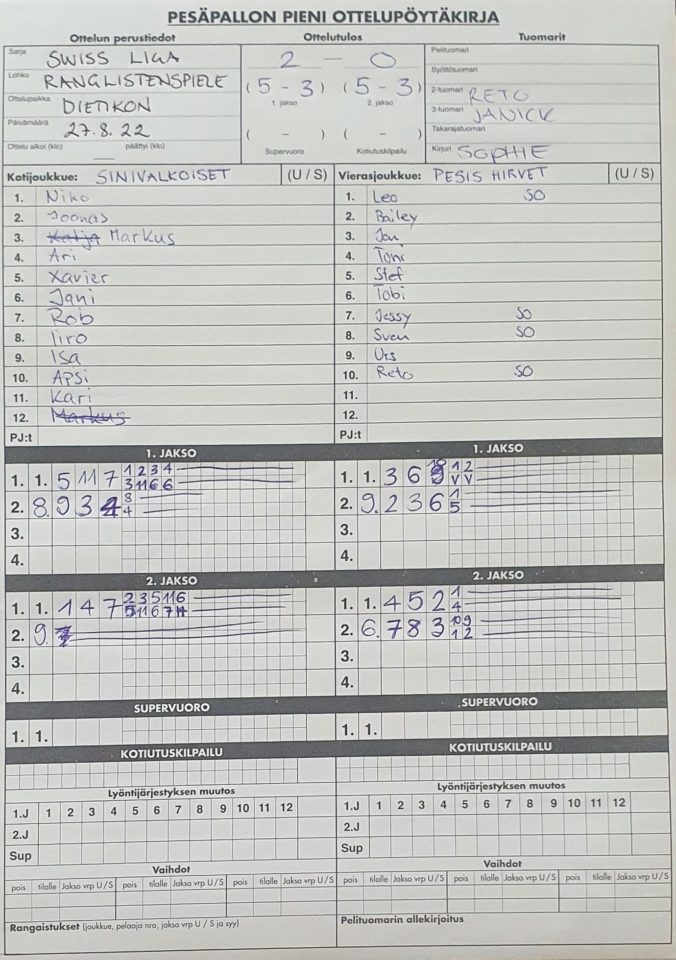 PESÄPALLON PIENI OTTELUPÖYTÄKIRJA
Ottelun perustiedot
Ottelutulos
Tuomarit
Sarja SWISS LIGA
Lohko RANGLISTENSPIELE
Ottelupaikka DIETIKON
Päivämäärä 27.8.22
Ottelu alkoi (klo) — päättyi (klo)
2 — 0
(5 - 3) (5 - 3)
1. jakso 2. jakso
( - ) ( - )
Supervuoro Kotiutuskilpailu
Pelituomari
Syöttötuomari
2-tuomari RETO
3-tuomari JANICK
Takarajatuomari
Kirjuri SOPHIE
Kotijoukkue: SINIVALKOISET (U / S)
1. Niko
2. Joonas
3. Katja Markus
4. Ari
5. Xavier
6. Jani
7. Rob
8. Iiro
9. ISA
10. APSi
11. Kari
12. Markus
PJ:t
Vierasjoukkue: PESIS HIRVET (U / S)
1. Leo SO
2. Bailey
3. Jan
4. Toni
5. Stef
6. Tobi
7. Jessy SO
8. Sven SO
9. Urs
10. Reto SO
11.
12.
PJ:t
1. JAKSO
1. 1. 5 11 7 1 2 3 4
3 11 6 6
2. 8. 9 3 4 8
4
3.
4.
1. JAKSO
1. 1. 3 6 10 1 2
V V
2. 9. 2 3 6 1
5
3.
4.
2. JAKSO
1. 1. 1 4 7 2 3 5 11 6
5 11 6 7
2. 9.
3.
4.
2. JAKSO
1. 1. 4 5 2 1
4
2. 6. 7 8 3 10 9
1 2
3.
4.
SUPERVUORO
1. 1.
SUPERVUORO
1. 1.
KOTIUTUSKILPAILU
KOTIUTUSKILPAILU
Lyöntijärjestyksen muutos
1.J 1 2 3 4 5 6 7 8 9 10 11 12
2.J
Sup
Lyöntijärjestyksen muutos
1.J 1 2 3 4 5 6 7 8 9 10 11 12
2.J
Sup
Vaihdot
pois tilalle Jakso vrp U / S pois tilalle Jakso vrp U / S pois tilalle Jakso vrp U / S
Vaihdot
pois tilalle Jakso vrp U / S pois tilalle Jakso vrp U / S pois tilalle Jakso vrp U / S
Rangaistukset (joukkue, pelaaja nro, jakso vrp U / S ja syy)
Pelituomarin allekirjoitus